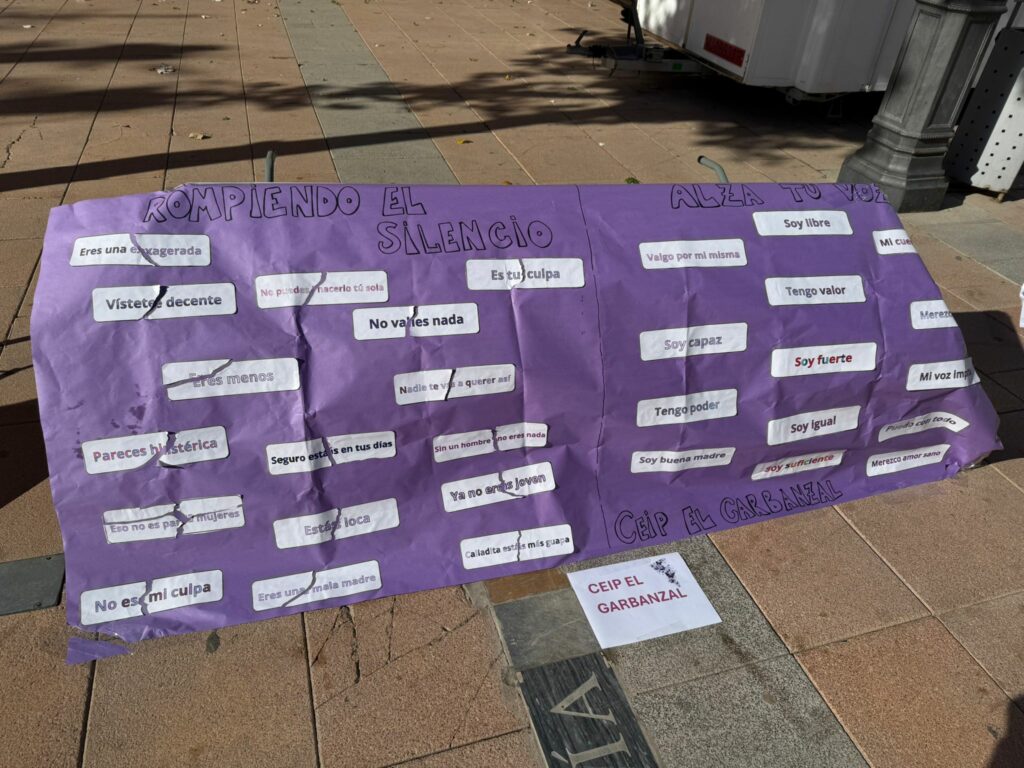 ROMPIENDO EL
SILENCIO
Eres una exxagerada
Vístete decente
No puedes hacerlo tú sola
Es tu culpa
No valles nada
Eres menos
Nadie te va a querer así
Pareces hisstérica
Seguro estáis en tus días
Sin un hombre no eres nada
Eso no es para mujeres
Estás loca
Ya no ereis joven
Calladita estáis más guapa
No es mi culpa
Eres una mala madre
ALZA TU VOZ
Soy libre
Valgo por mi misma
Tengo valor
Soy capaz
Merezc
Soy fuerte
Mi voz imp
Tengo poder
Soy igual
Puedo con todo
Soy buena madre
Soy suficiente
Merezco amor sano
CEIP EL GARBANZAL
CEIP EL
GARBANZAL
ÍA